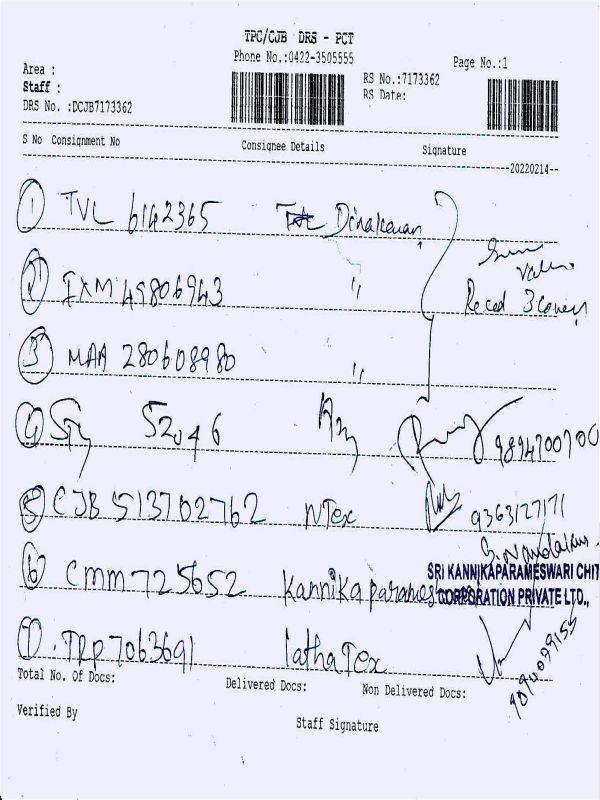 TPC/CJB DRS - PCT
Phone No.:0422-3505555
Page No.:1
Area :
Staff :
DRS No. :DCJB7173362
RS No.:7173362
RS Date:
S No Consignment No Consignee Details Signature
20220214
1 TVL 6142365 Dinakaran
2 IXM 49806943 "
Recd 3 covers
3 MAA 280608980 "
4 52046 9894700700
5 CJB 513702762 NTex 9363127171
SRI KANNIKAPARAMESWARI CHIT
CORPORATION PRIVATE LTD.,
6 CMM 725652 Kannikaparames
7 TRP 7063691 latha Tex
Total No. Of Docs: Delivered Docs: Non Delivered Docs:
Verified By Staff Signature